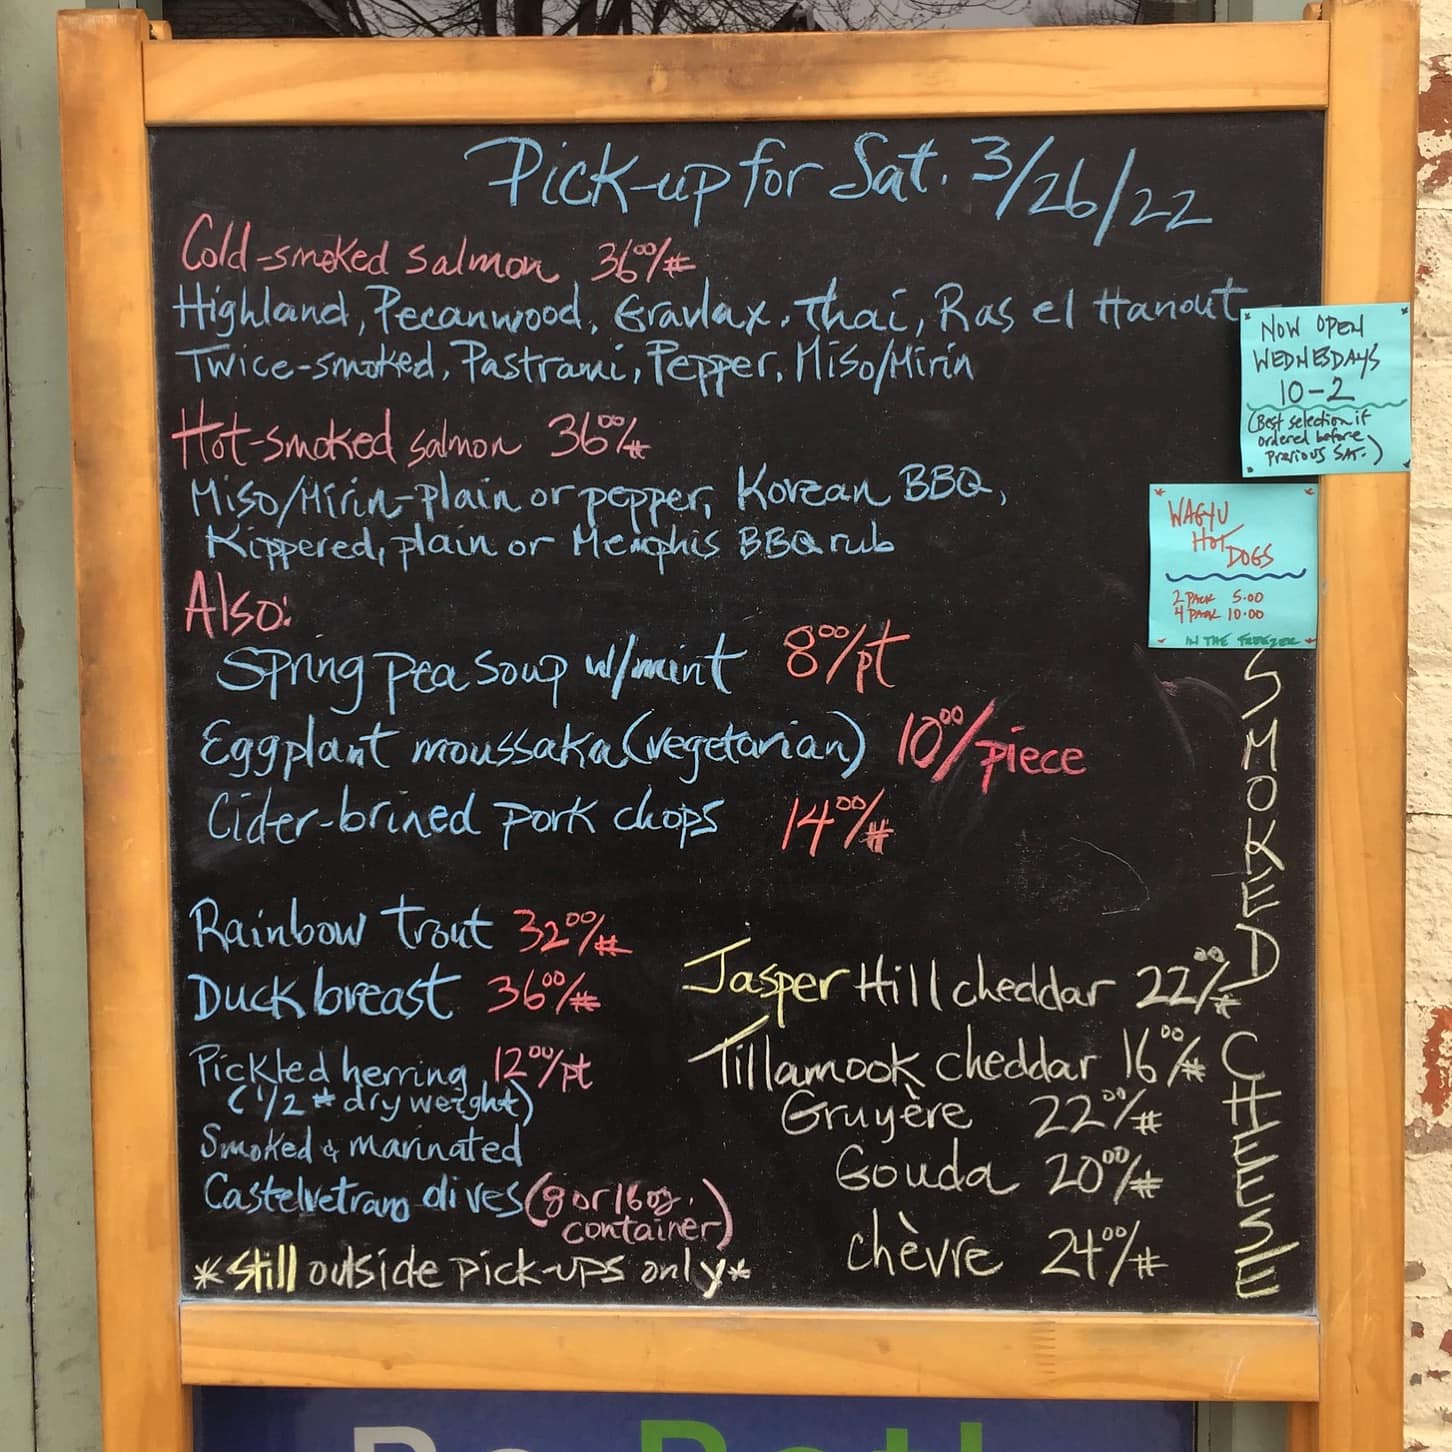 Pick-up for Sat. 3/26/22
Cold-smoked salmon 36⁰⁰/#
Highland, Pecanwood, Gravlax, Thai, Ras el Hanout
Twice-smoked, Pastrami, Pepper, Miso/Mirin
Hot-smoked salmon 36⁰⁰/#
Miso/Mirin-plain or pepper, Korean BBQ,
Kippered, plain or Memphis BBQ rub
Also:
Spring pea soup w/mint 8⁰⁰/pt
Eggplant moussaka (vegetarian) 10⁰⁰/piece
Cider-brined pork chops 14⁰⁰/#
Rainbow trout 32⁰⁰/#
Duck breast 36⁰⁰/#
Pickled herring 12⁰⁰/pt
(1/2 # dry weight)
Smoked & marinated
Castelvetrano olives (8 or 16 oz.
container)
*Still outside pick-ups only*
Jasper Hill cheddar 22⁰⁰/#
Tillamook cheddar 16⁰⁰/#
Gruyère 22⁰⁰/#
Gouda 20⁰⁰/#
chèvre 24⁰⁰/#
SMOKED CHEESE
NOW OPEN
WEDNESDAYS
10-2
(Best selection if
ordered before
previous SAT.)
WAGYU
HOT
DOGS
2 PACK 5.00
4 PACK 10.00
IN THE FREEZER